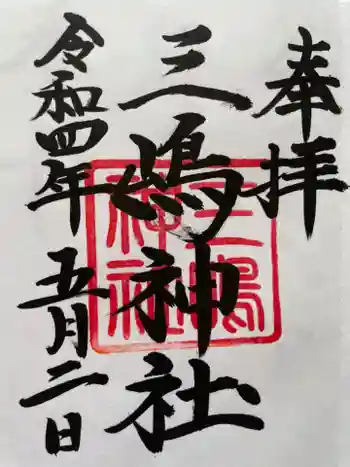 奉拝
三嶋神社
令和四年五月二日
三嶋神社